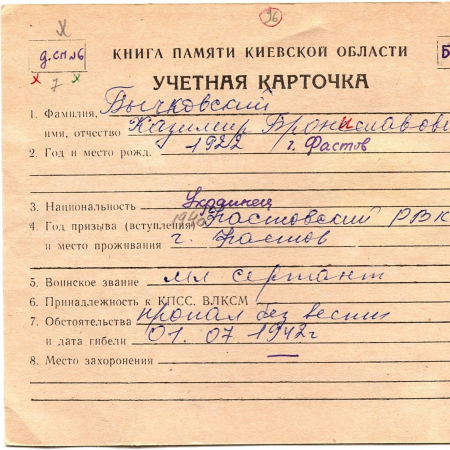 х
96
д.сп №6
х 7 х
Б
КНИГА ПАМЯТИ КИЕВСКОЙ ОБЛАСТИ
УЧЕТНАЯ КАРТОЧКА
1. Фамилия, Бычковский
имя, отчество Казимир Брониславови
2. Год и место рожд. 1922 г. Фастов
3. Национальность Украинец
4. Год призыва (вступления) 1940 Фастовский РВК
и место проживания г. Фастов
5. Воинское звание мл сержант
6. Принадлежность к КПСС, ВЛКСМ
7. Обстоятельства пропал без вести
и дата гибели 01.07 1942г
8. Место захоронения —